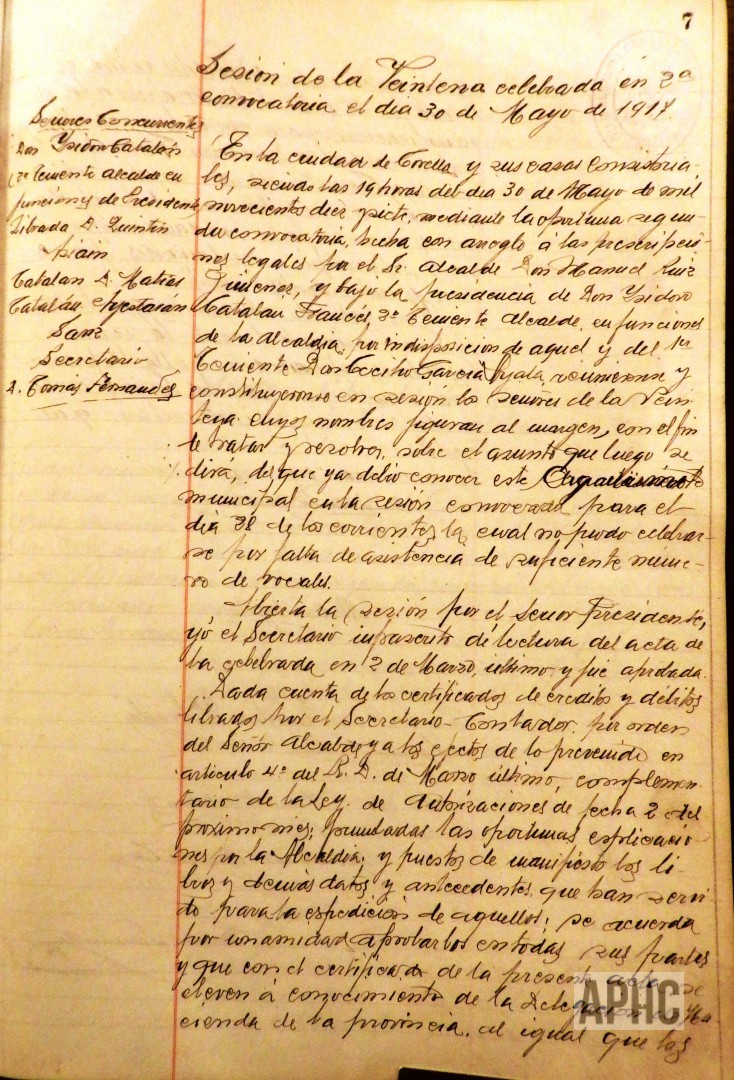 7
Sesion de la Veintena celebrada en 2ª
convocatoria el dia 30 de Mayo de 1917.
Señores Concurrentes
Don Ysidro Catalán
2º Teniente alcalde en
funciones de Presidente
Librada D. Quintin
Catalan D. Matias
Catalán
Sanz
Secretario
D. Tomas Fernandez
En la ciudad de Corella y sus casas Consistoria-
les, siendo las 19 horas del dia 30 de Mayo de mil
novecientos diez y siete, mediante la oportuna segun-
da convocatoria, hecha con arreglo á las prescripcio-
nes legales por el Sr. Alcalde Don Manuel Ruiz
Jimenez, y bajo la presidencia de Don Ysidoro
Catalán Frances 2º Teniente Alcalde, en funciones
de la Alcaldia, por indisposicion de aquel y del 1er
Teniente Don Cecilio Garcia Ayala, reunieronse y
constituyeronse en sesión los Señores de la Vein-
tena cuyos nombres figuran al margen, con el fin
de tratar y resolver, sobre el asunto que luego se
dirá, del que ya debió conocer este Organismo
municipal en la sesión convocada para el
dia de los corrientes la cual no pudo celebrar-
se por falta de asistencia de suficiente núme-
ro de vocales.
Abierta la sesión por el Señor Presidente,
yó el Secretario infrascrito di lectura del acta de
la celebrada en 2 de Marzo, último y fué aprobada.
Dada cuenta de los certificados de creditos y débitos
librados por el Secretario-Contador por orden
del Señor Alcalde y a los efectos de lo prevenido en
articulo 4º del R. D. de Marzo último, complemen-
tario de la Ley de Autorizaciones de fecha 2 del
proximo mes; las oportunas esplicacio-
nes por la Alcaldia, y puestos de manifiesto los li-
bros y demás datos y antecedentes que han servi-
do para la espedición de aquellos; se acuerda
por unamidad aprobarlos en todas sus partes
y que con el certificado de la presente acta se
eleven á conocimiento de la Delegación de Ha-
cienda de la provincia, al igual que los
APHC